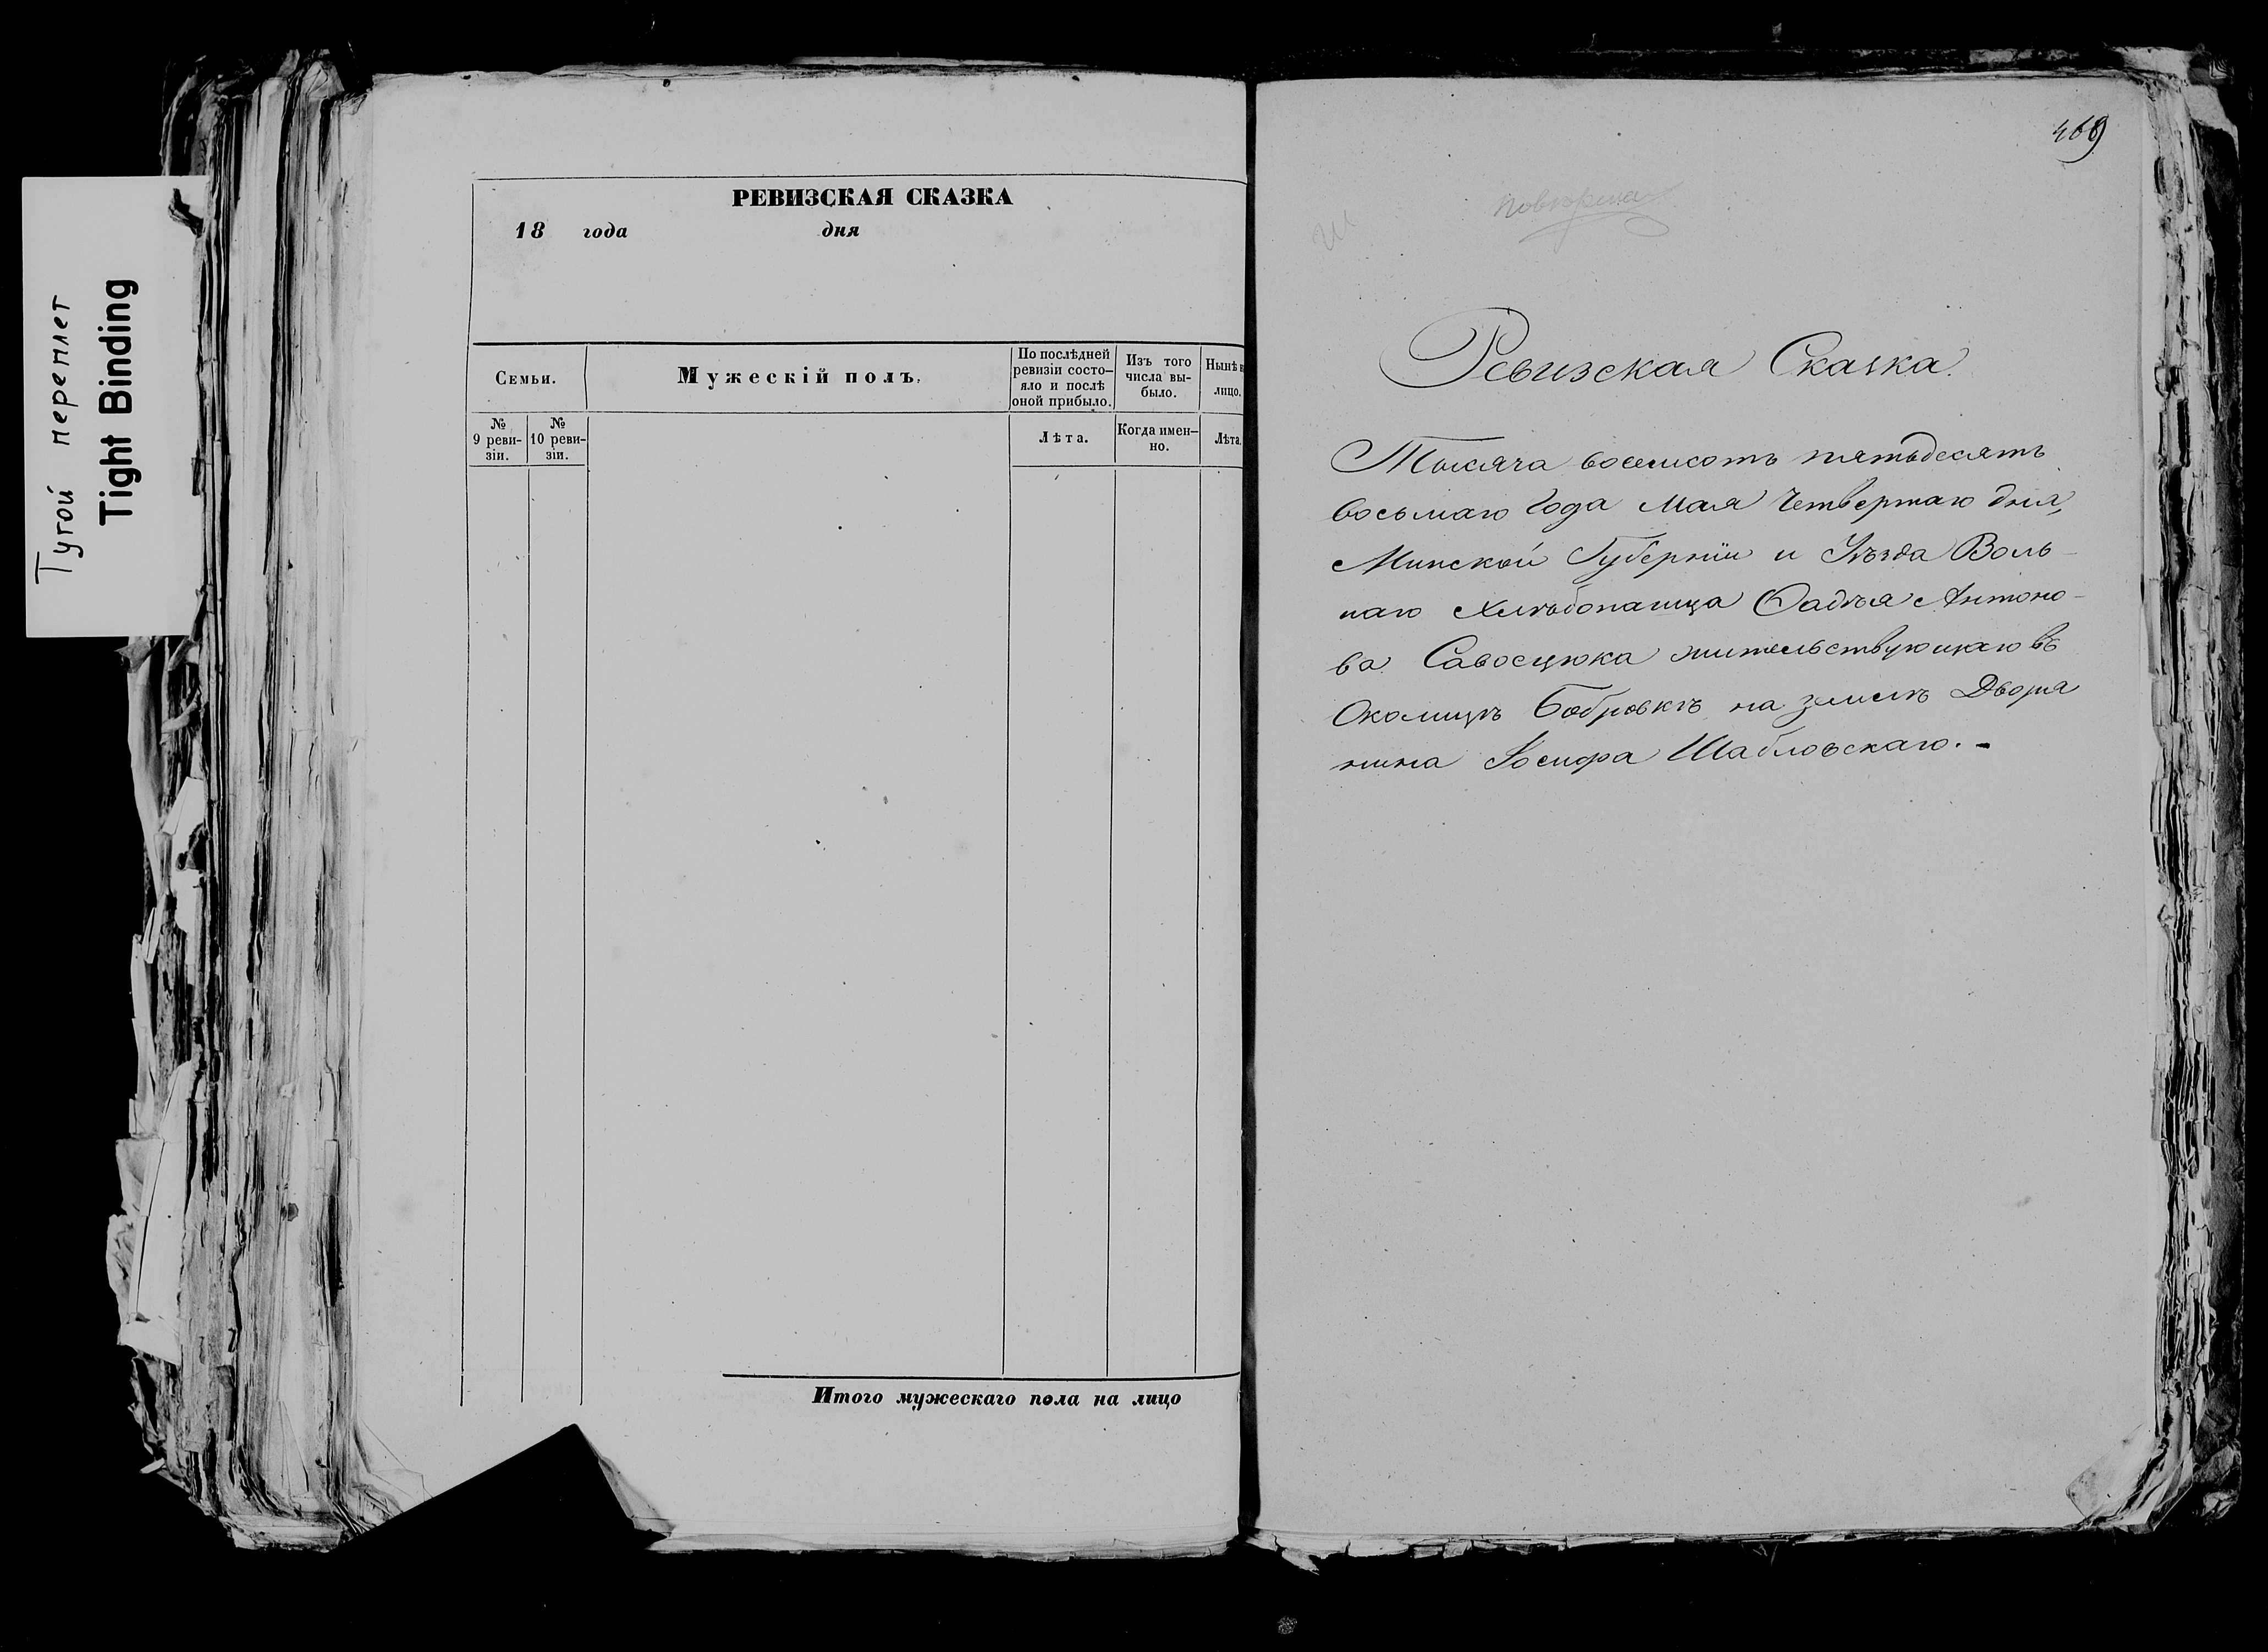 Тугой переплет
Tight Binding
РЕВИЗСКАЯ СКАЗКА
18 года дня
Семьи.
Мужескій полъ.
По послѣдней
ревизіи состо-
яло и послѣ
оной прибыло.
Изъ того
числа вы-
было.
Нынѣ
лицо.
№
9 реви-
зіи.
№
10 реви-
зіи.
Лѣта.
Когда имен-
но.
Лѣта.
Итого мужескаго пола на лицо
469
Ревизская Сказка.
Тысяча восемсотъ пятьдесятъ
восьмаго Года Мая Четвертаго дня,
Минской Губерніи и Уѣзда Воль-
наго Хлѣбопашца Фадѣя Антоно-
ва Савосцюка жительствующаго въ
Околицѣ Бобровкѣ на землѣ Дворя
нина Іосифа Шабловскаго.-